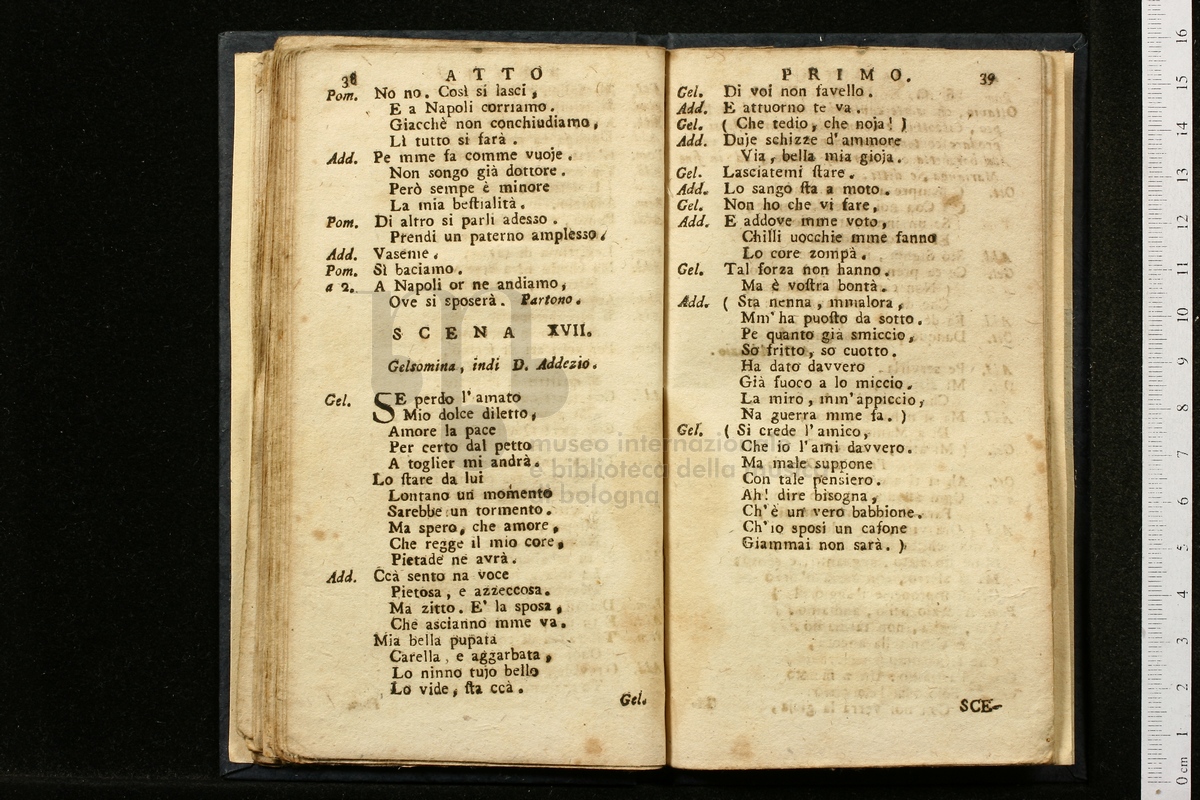 38 ATTO
Pom. No no. Così si lasci,
E a Napoli corriamo.
Giacchè non conchiudiamo,
Lì tutto si farà.
Add. Pe mme fa comme vuoje.
Non songo già dottore.
Però sempe è minore
La mia bestialità.
Pom. Di altro si parli adesso.
Prendi un paterno amplesso.
Add. Vaseme.
Pom. Sì baciamo.
a 2. A Napoli or ne andiamo,
Ove si sposerà. Partono.
SCENA XVII.
Gelsomina, indi D. Addezio.
Gel. SE perdo l'amato
Mio dolce diletto,
Amore la pace
Per certo dal petto
A toglier mi andrà.
Lo stare da lui
Lontano un momento
Sarebbe un tormento.
Ma spero, che amore,
Che regge il mio core,
Pietade ne avrà.
Add. Ccà sento na voce
Pietosa, e azzeccosa.
Ma zitto. E' la sposa,
Che ascianno mme va.
Mia bella pupata
Carella, e aggarbata,
Lo ninno tujo bello
Lo vide, sta ccà.
Gel.
PRIMO. 39
Gel. Di voi non favello.
Add. E attuorno te va.
Gel. ( Che tedio, che noja! )
Add. Duje schizze d'ammore
Via, bella mia gioja.
Gel. Lasciatemi stare.
Add. Lo sango sta a moto.
Gel. Non ho che vi fare,
Add. E addove mme voto,
Chilli uocchie mme fanno
Lo core zompà.
Gel. Tal forza non hanno.
Ma è vostra bontà.
Add. ( Sta nenna, mmalora,
Mm'ha puosto da sotto.
Pe quanto già smiccio,
So fritto, so cuotto.
Ha dato davvero
Già fuoco a lo miccio.
La miro, mm'appiccio,
Na guerra mme fa. )
Gel. ( Si crede l'amico,
Che io l'ami davvero.
Ma male suppone
Con tale pensiero.
Ah! dire bisogna,
Ch'è un vero babbione.
Ch'io sposi un cafone
Giammai non sarà. )
SCE-
museo internazionale
e biblioteca della musica
di bologna
0 cm 1 2 3 4 5 6 7 8 9 10 11 12 13 14 15 16